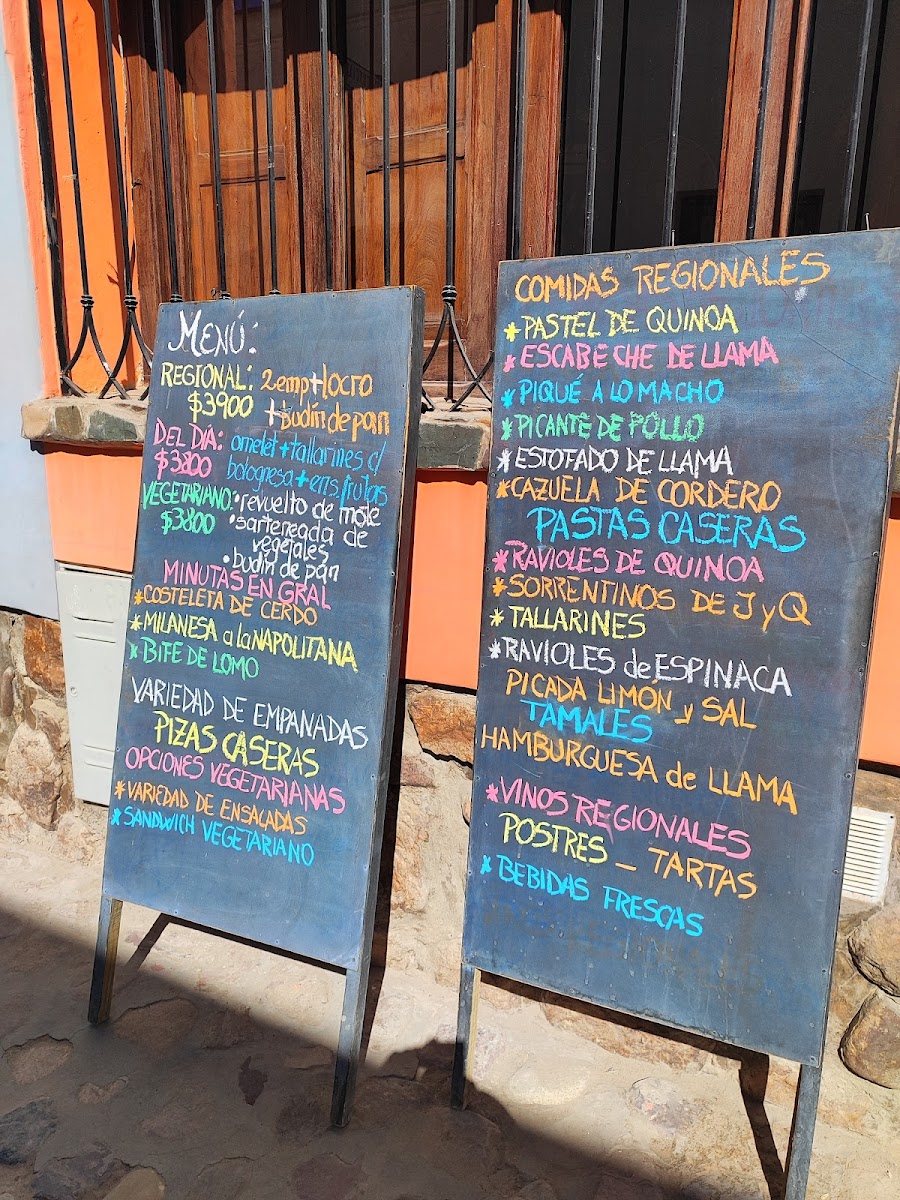 MENÚ:
REGIONAL: 2 emp + locro
$3900 + budín de pan
DEL DIA: omelet + tallarines c/
$3800 bolognesa + ens. frutas
VEGETARIANO: • revuelto de mote
$3800 • sarteneada de
vegetales
• budín de pan
MINUTAS EN GRAL
* COSTELETA DE CERDO
* MILANESA a la NAPOLITANA
* BIFE DE LOMO
VARIEDAD DE EMPANADAS
PIZAS CASERAS
OPCIONES VEGETARIANAS
* VARIEDAD DE ENSALADAS
* SANDWICH VEGETARIANO
COMIDAS REGIONALES
* PASTEL DE QUINOA
* ESCABECHE DE LLAMA
* PIQUÉ A LO MACHO
* PICANTE DE POLLO
* ESTOFADO DE LLAMA
* CAZUELA DE CORDERO
PASTAS CASERAS
* RAVIOLES DE QUINOA
* SORRENTINOS DE J y Q
* TALLARINES
* RAVIOLES de ESPINACA
PICADA LIMON y SAL
TAMALES
HAMBURGUESA de LLAMA
* VINOS REGIONALES
POSTRES - TARTAS
* BEBIDAS FRESCAS